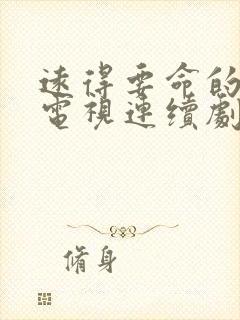 遠得要命的
電視連續劇
脩身